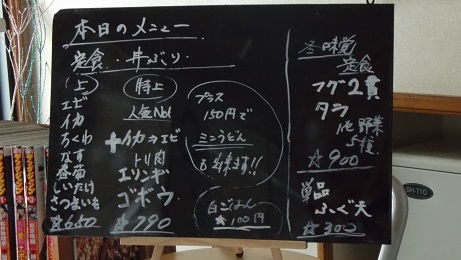 本日のメニュー
定食・丼ぶり
(上)
エビ
イカ
ちくわ
なす
春菊
しいたけ
さつまいも
☆650
(特上)
人気No1
+イカ→エビ
トリ肉
エリンギ
ゴボウ
☆790
プラス
150円で
ミニうどん
出来ます!!
白ごはん
☆100円
冬味覚
定食
フグ2貫
タラ
他野菜
5種
☆900
単品
ふぐ天
☆300
SH-110